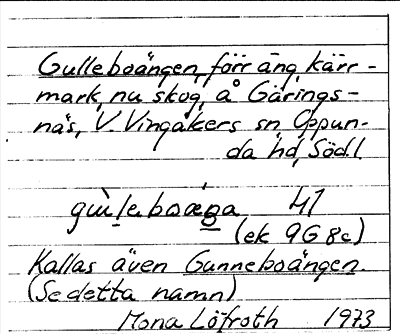 Gulleboängen, förr äng, kärr-
mark, nu skog, å Gärings-
näs, V. Vingåkers sn, Oppun-
da hd, Södl.
41
(ek 9G 8c)
Kallas även Gunneboängen.
(Se detta namn)
Mona Löfroth 1973